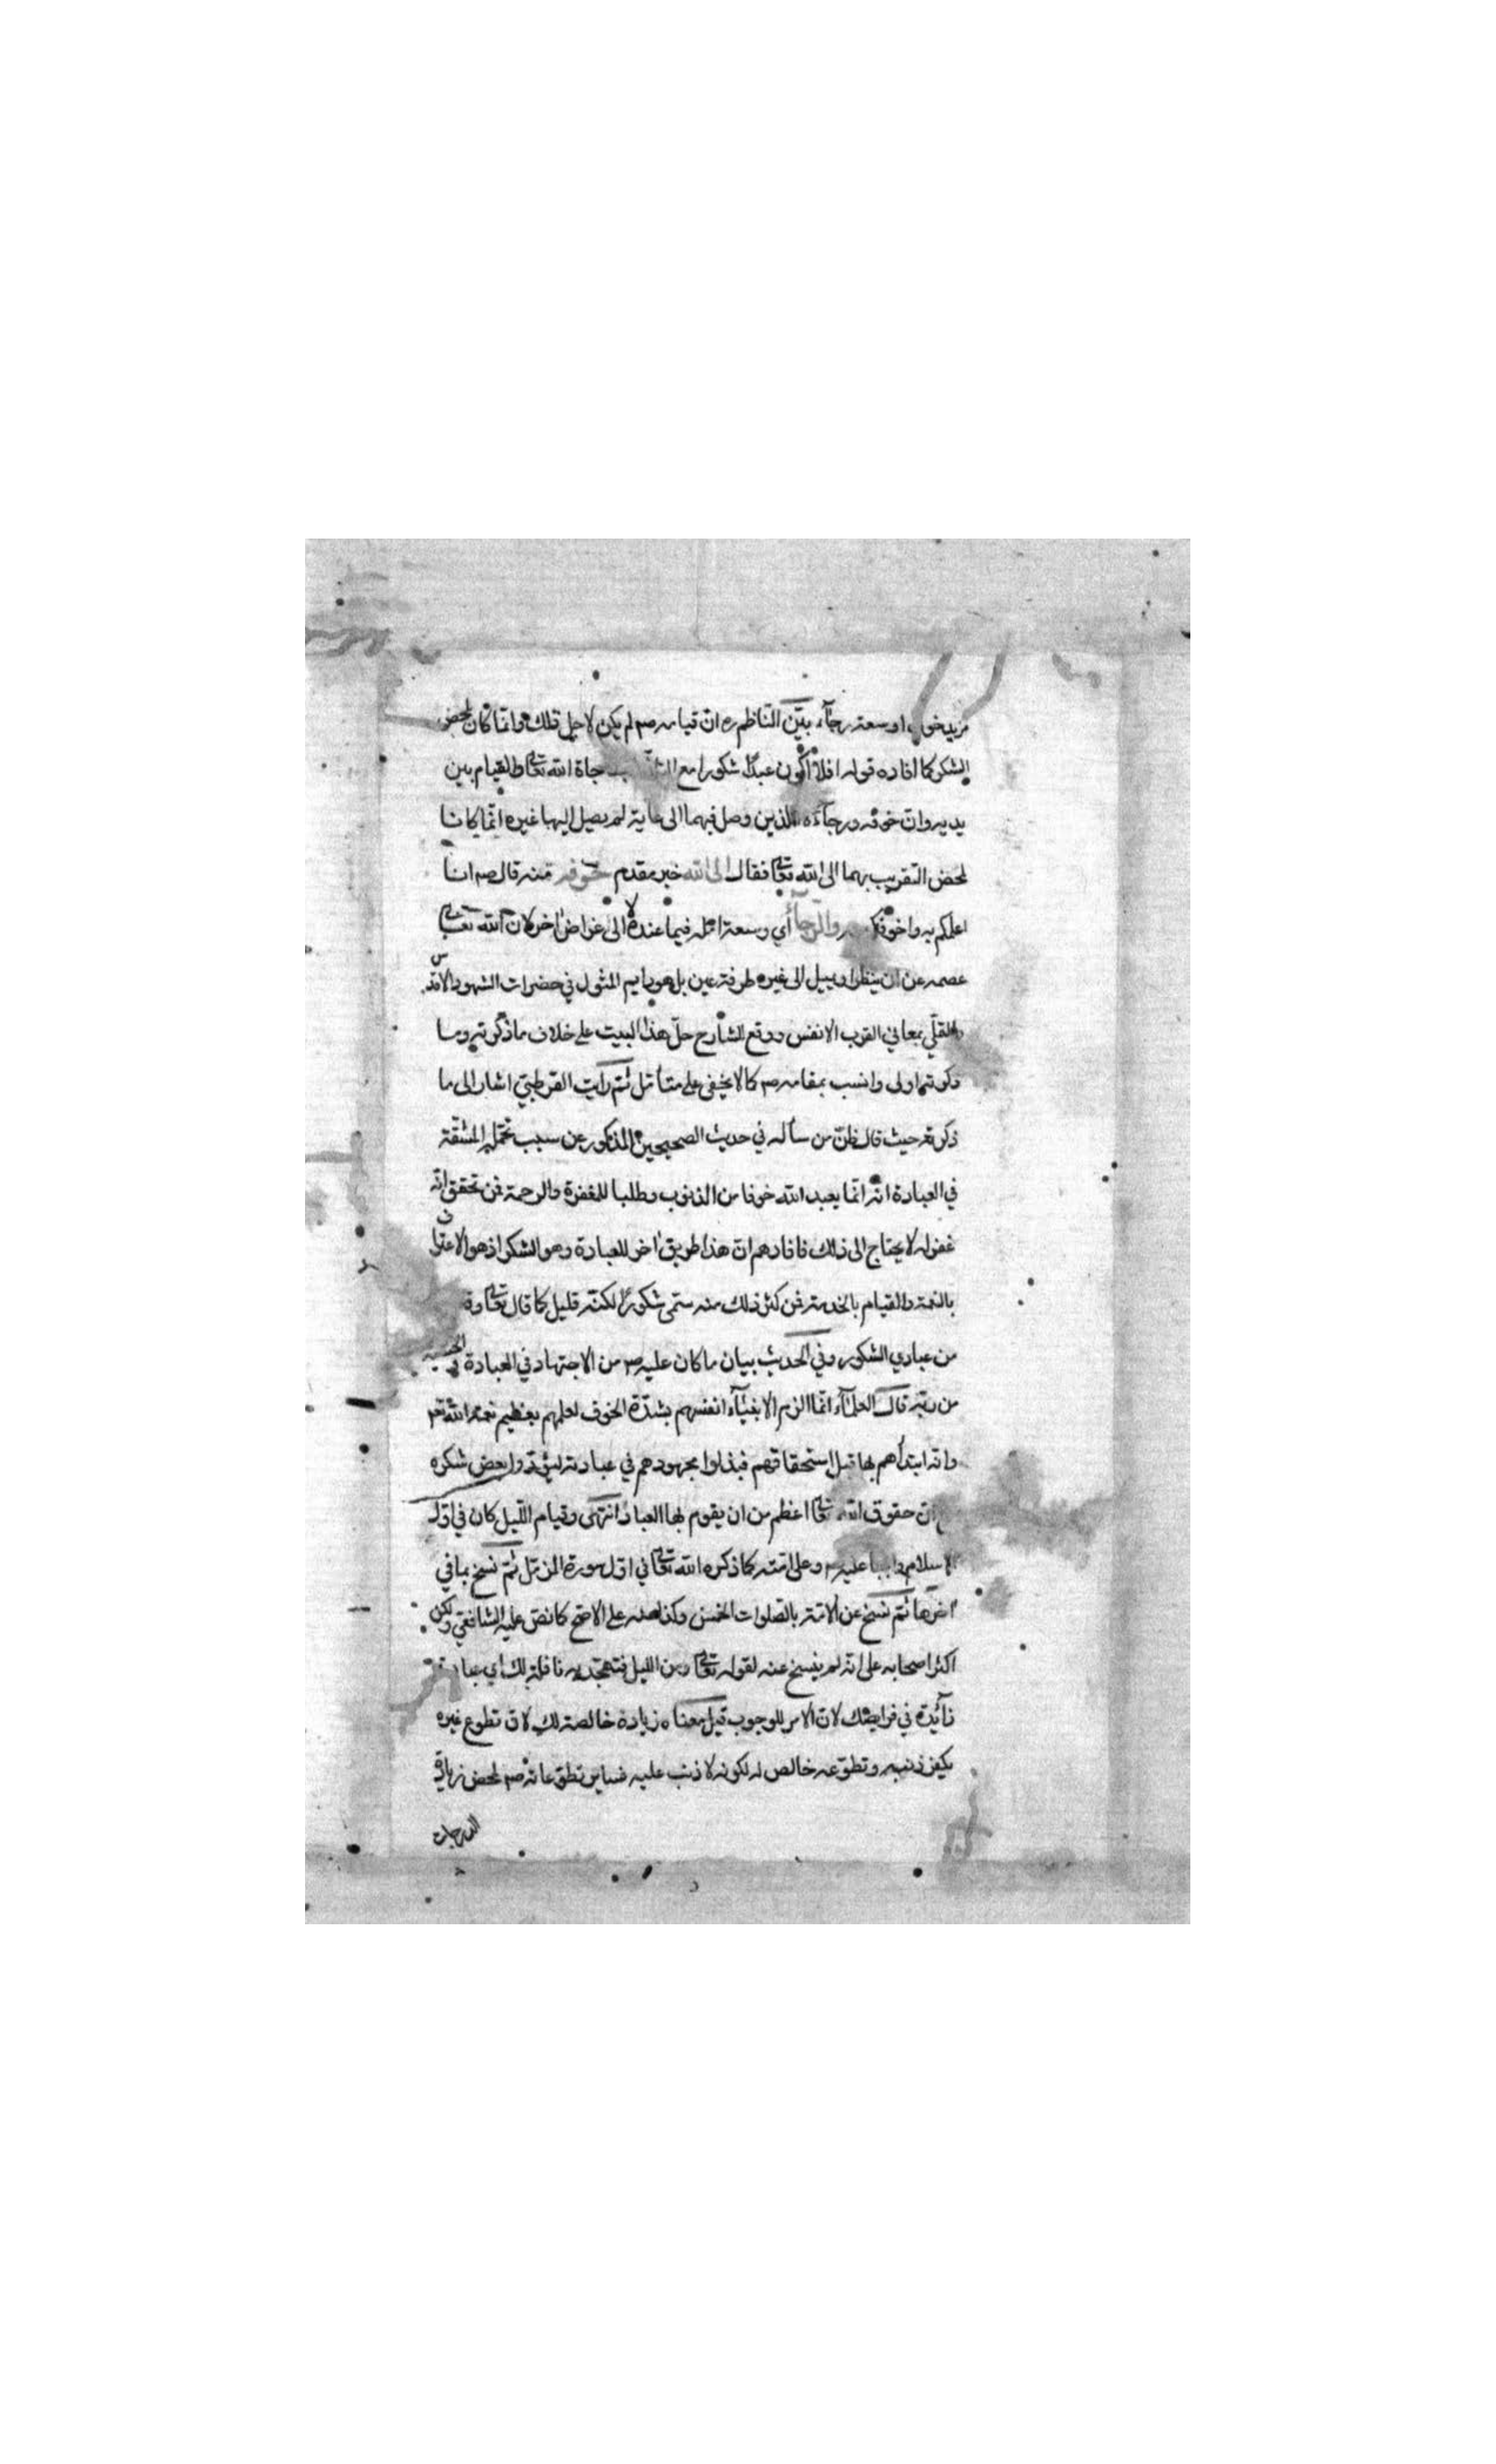 مزيد خوف او سعة رجآء بيّن النّاظم ره انّ قيامه صم لم يكن لاجل ذلك وانّما كان لمحض
الشكر كما افاده قوله افلا اكون عبدًا شكورا مع الله تعا والقيام بين
يديه وانّ خوفه ورجآءه الذين وصل فيهما الى غاية لم يصل اليها غيره انّما كانا
لمحض التقريب بهما الى الله تعا فقال الى الله خبر مقدم خوفه منه قال صم انا
اعلمكم به واخوفكم والرجآء اي وسعة امله فيما عنده لا الى غراض اخر لان الله تعالى
عصمه عن ان ينظر او يميل الى غيره طرفة عين بل هو دايم المثول في حضرات الشهود الاقدس
والتملّي بمعاني القرب الانفس ووقع للشارح حلّ هذا البيت على خلاف ما ذكرته وما
ذكرته اولى وانسب بمقامه صم كما لا يخفى على متأمّل ثمّ رايت القرطبيّ اشار الى ما
ذكرته حيث قال ظنّ من سأله في حديث الصحيحين المذكور عن سبب تحمّله المشقّة
في العبادة انّه انّما يعبد الله خوفا من الذنوب وطلبا للمغفرة والرحمة فمن تحقق انّه
غفر له لا يحتاج الى ذلك فافادهم انّ هذا طريق اخر للعبادة وهو الشكر اذ هو الاعتراف
بالنعمة والقيام بالخدمة فمن كثر ذلك منه سمّي شكورًا لكنّه قليل كما قال تعا و
من عبادي الشكور وفي الحديث بيان ما كان عليه صم من الاجتهاد في العبادة والخشية
من ربّه قال العلمآء انّما الزم الانبيآء انفسهم بشدّة الخوف لعلمهم بعظيم نعمة الله تعم
وانه ابتدأهم بها قبل استحقاقهم فبذلوا مجهودهم في عبادته ليؤدّوا بعض شكره
انّ حقوق الله تعا اعظم من ان يقوم بها العباد انتهى وقيام اللّيل كان في اوّل
الاسلام واجبا عليه وعلى امّته كما ذكره الله تعا في اوّل سورة المزّمّل ثمّ نسخ بما في
اخرها ثمّ نسخ عن الامّة بالصّلوات الخمس وكذا عنه على الاصحّ كما نصّ عليه الشافعي ولكن
اكثر اصحابه على انّه لم ينسخ عنه لقوله تعا ومن الليل فتهجّد به نافلة لك اي عبادة
زآئدة في فرايضك لانّ الامر للوجوب قيل معناه زيادة خالصة لك لانّ تطوع غيره
يكفر ذنبه وتطوّعه خالص له لكونه لا ذنب عليه فساير تطوّعاته صم لمحض زيادة
الدرجات